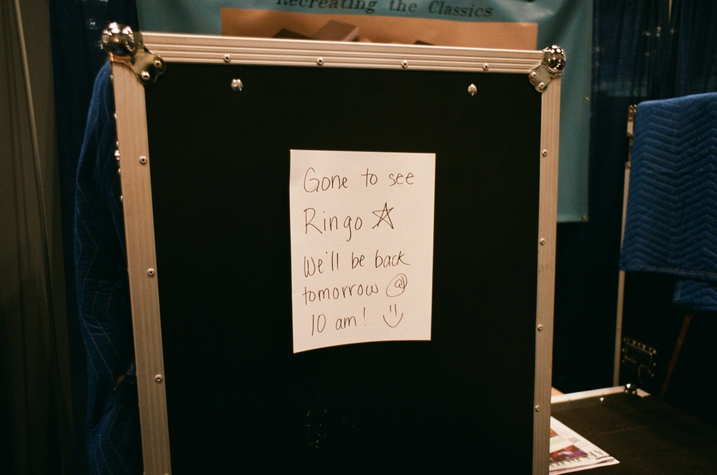 Recreating the Classics
Gone to see
Ringo ☆
We'll be back
tomorrow @
10 am! :)